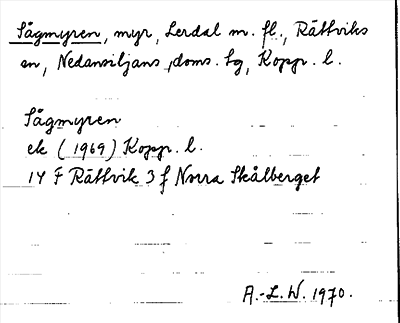 Sågmyren, myr, Lerdal m. fl., Rättviks
sn, Nedansiljans doms. tg, Kopp. l.
Sågmyren
ek (1969) Kopp. l.
14 F Rättvik 3 f Norra Skålberget
A.-L. W. 1970.